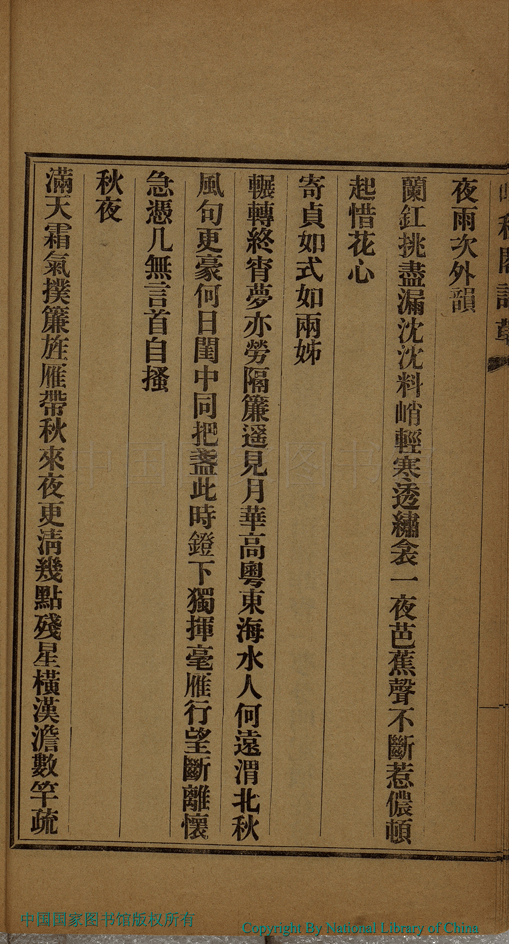 夜雨次外韻
蘭釭挑盡漏沈沈料峭輕寒透繡衾一夜芭蕉聲不斷惹儂頓
起惜花心
寄貞如式如兩姊
輾轉終宵夢亦勞隔簾遥見月華高粵東海水人何遠渭北秋
風句更豪何日閨中同把盞此時鐙下獨揮毫雁行望斷離懷
急憑几無言首自搔
秋夜
滿天霜氣撲簾旌雁帶秋來夜更清幾點殘星橫漢澹數竿疏
中国国家图书馆版权所有
Copyright By National Library of China